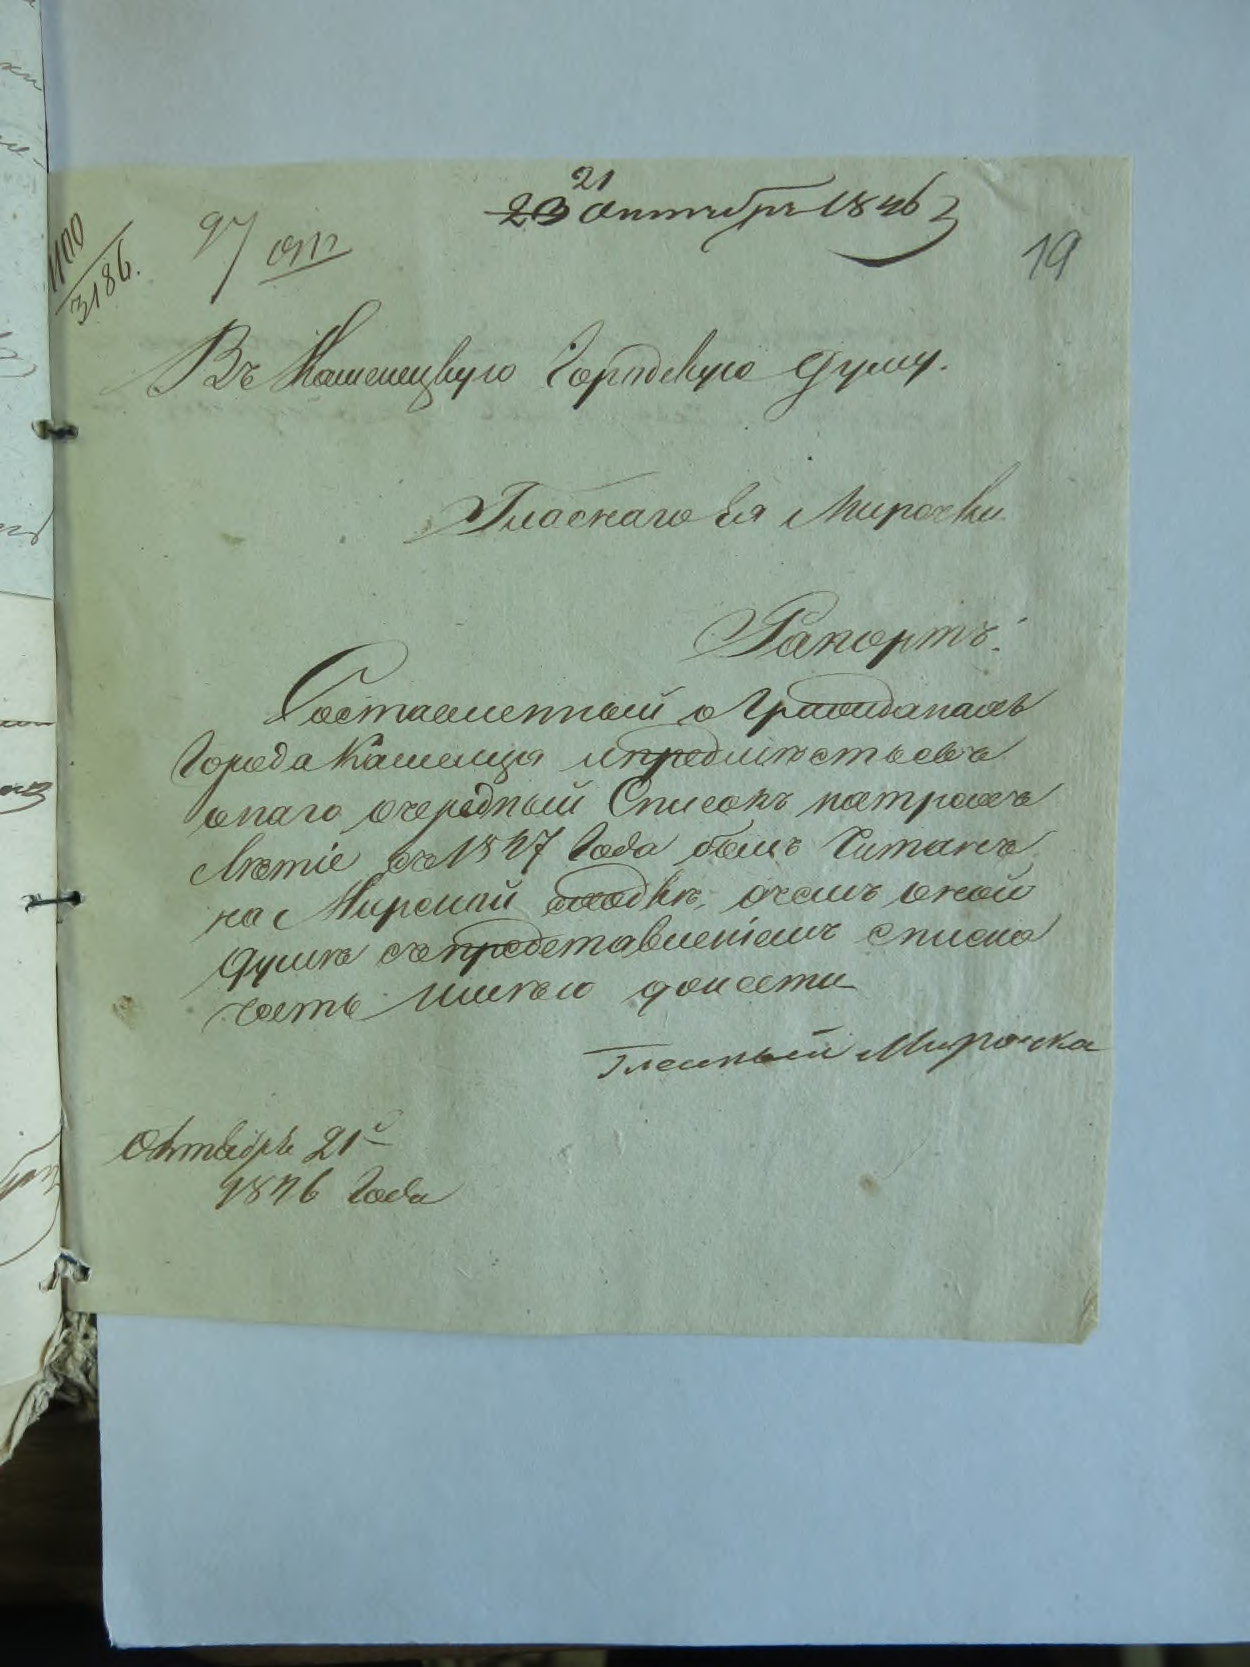 21
23 Октября 1846
19
1100
3186.
97 от
Въ Каменецкую Городскую Думу.
Гласнаго Ея Мирочки
Рапортъ.
Составленный о Гражданахъ
Города Каменца и предмѣстьевъ
онаго очередный Списокъ на трех
лѣтіе съ 1847 Года былъ Читанъ
на Мирской сходкѣ, о чемъ оной
Думѣ съ представленіемъ списка
честь имѣю донести
Гласный Мирочка
Октября 21
1846 Года